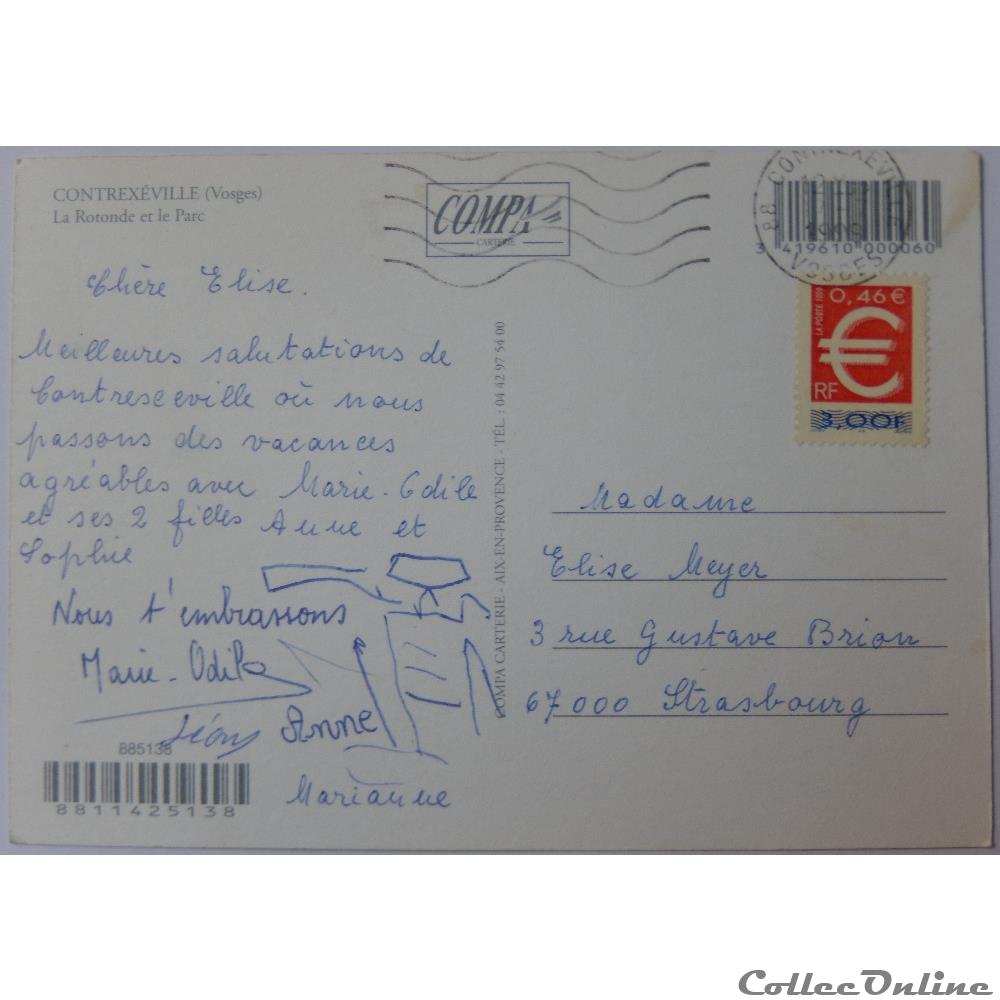 CONTREXÉVILLE (Vosges)
La Rotonde et le Parc
COMPA
CARTERIE
88 CONTREXEVILLE
VOSGES
3 419610 000060
0,46 €
LA POSTE 1999
€
RF
3,00F
Chère Elise.
Meilleures salutations de
Contresceville où nous
passons des vacances
agréables avec Marie-Odile
et ses 2 filles Anne et
Sophie
Nous t'embrassons
Marie-Odile
Anne
Marianne
COMPA CARTERIE - AIX-EN-PROVENCE - TÉL. : 04 42 97 54 00
Madame
Elise Meyer
3 rue Gustave Brion
67000 Strasbourg
885138
8811425138
CollecOnline